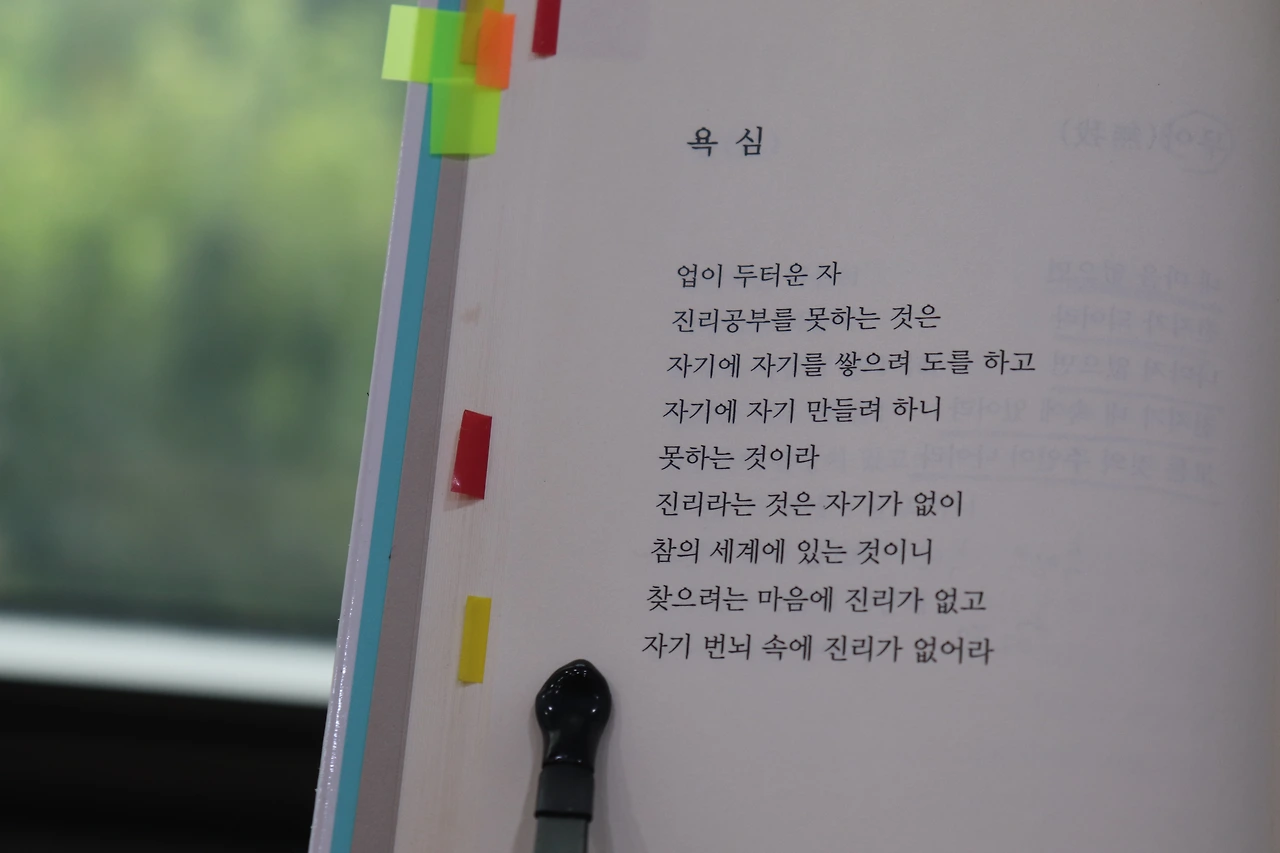 욕 심
업이 두터운 자
진리공부를 못하는 것은
자기에 자기를 쌓으려 도를 하고
자기에 자기 만들려 하니
못하는 것이라
진리라는 것은 자기가 없이
참의 세계에 있는 것이니
찾으려는 마음에 진리가 없고
자기 번뇌 속에 진리가 없어라